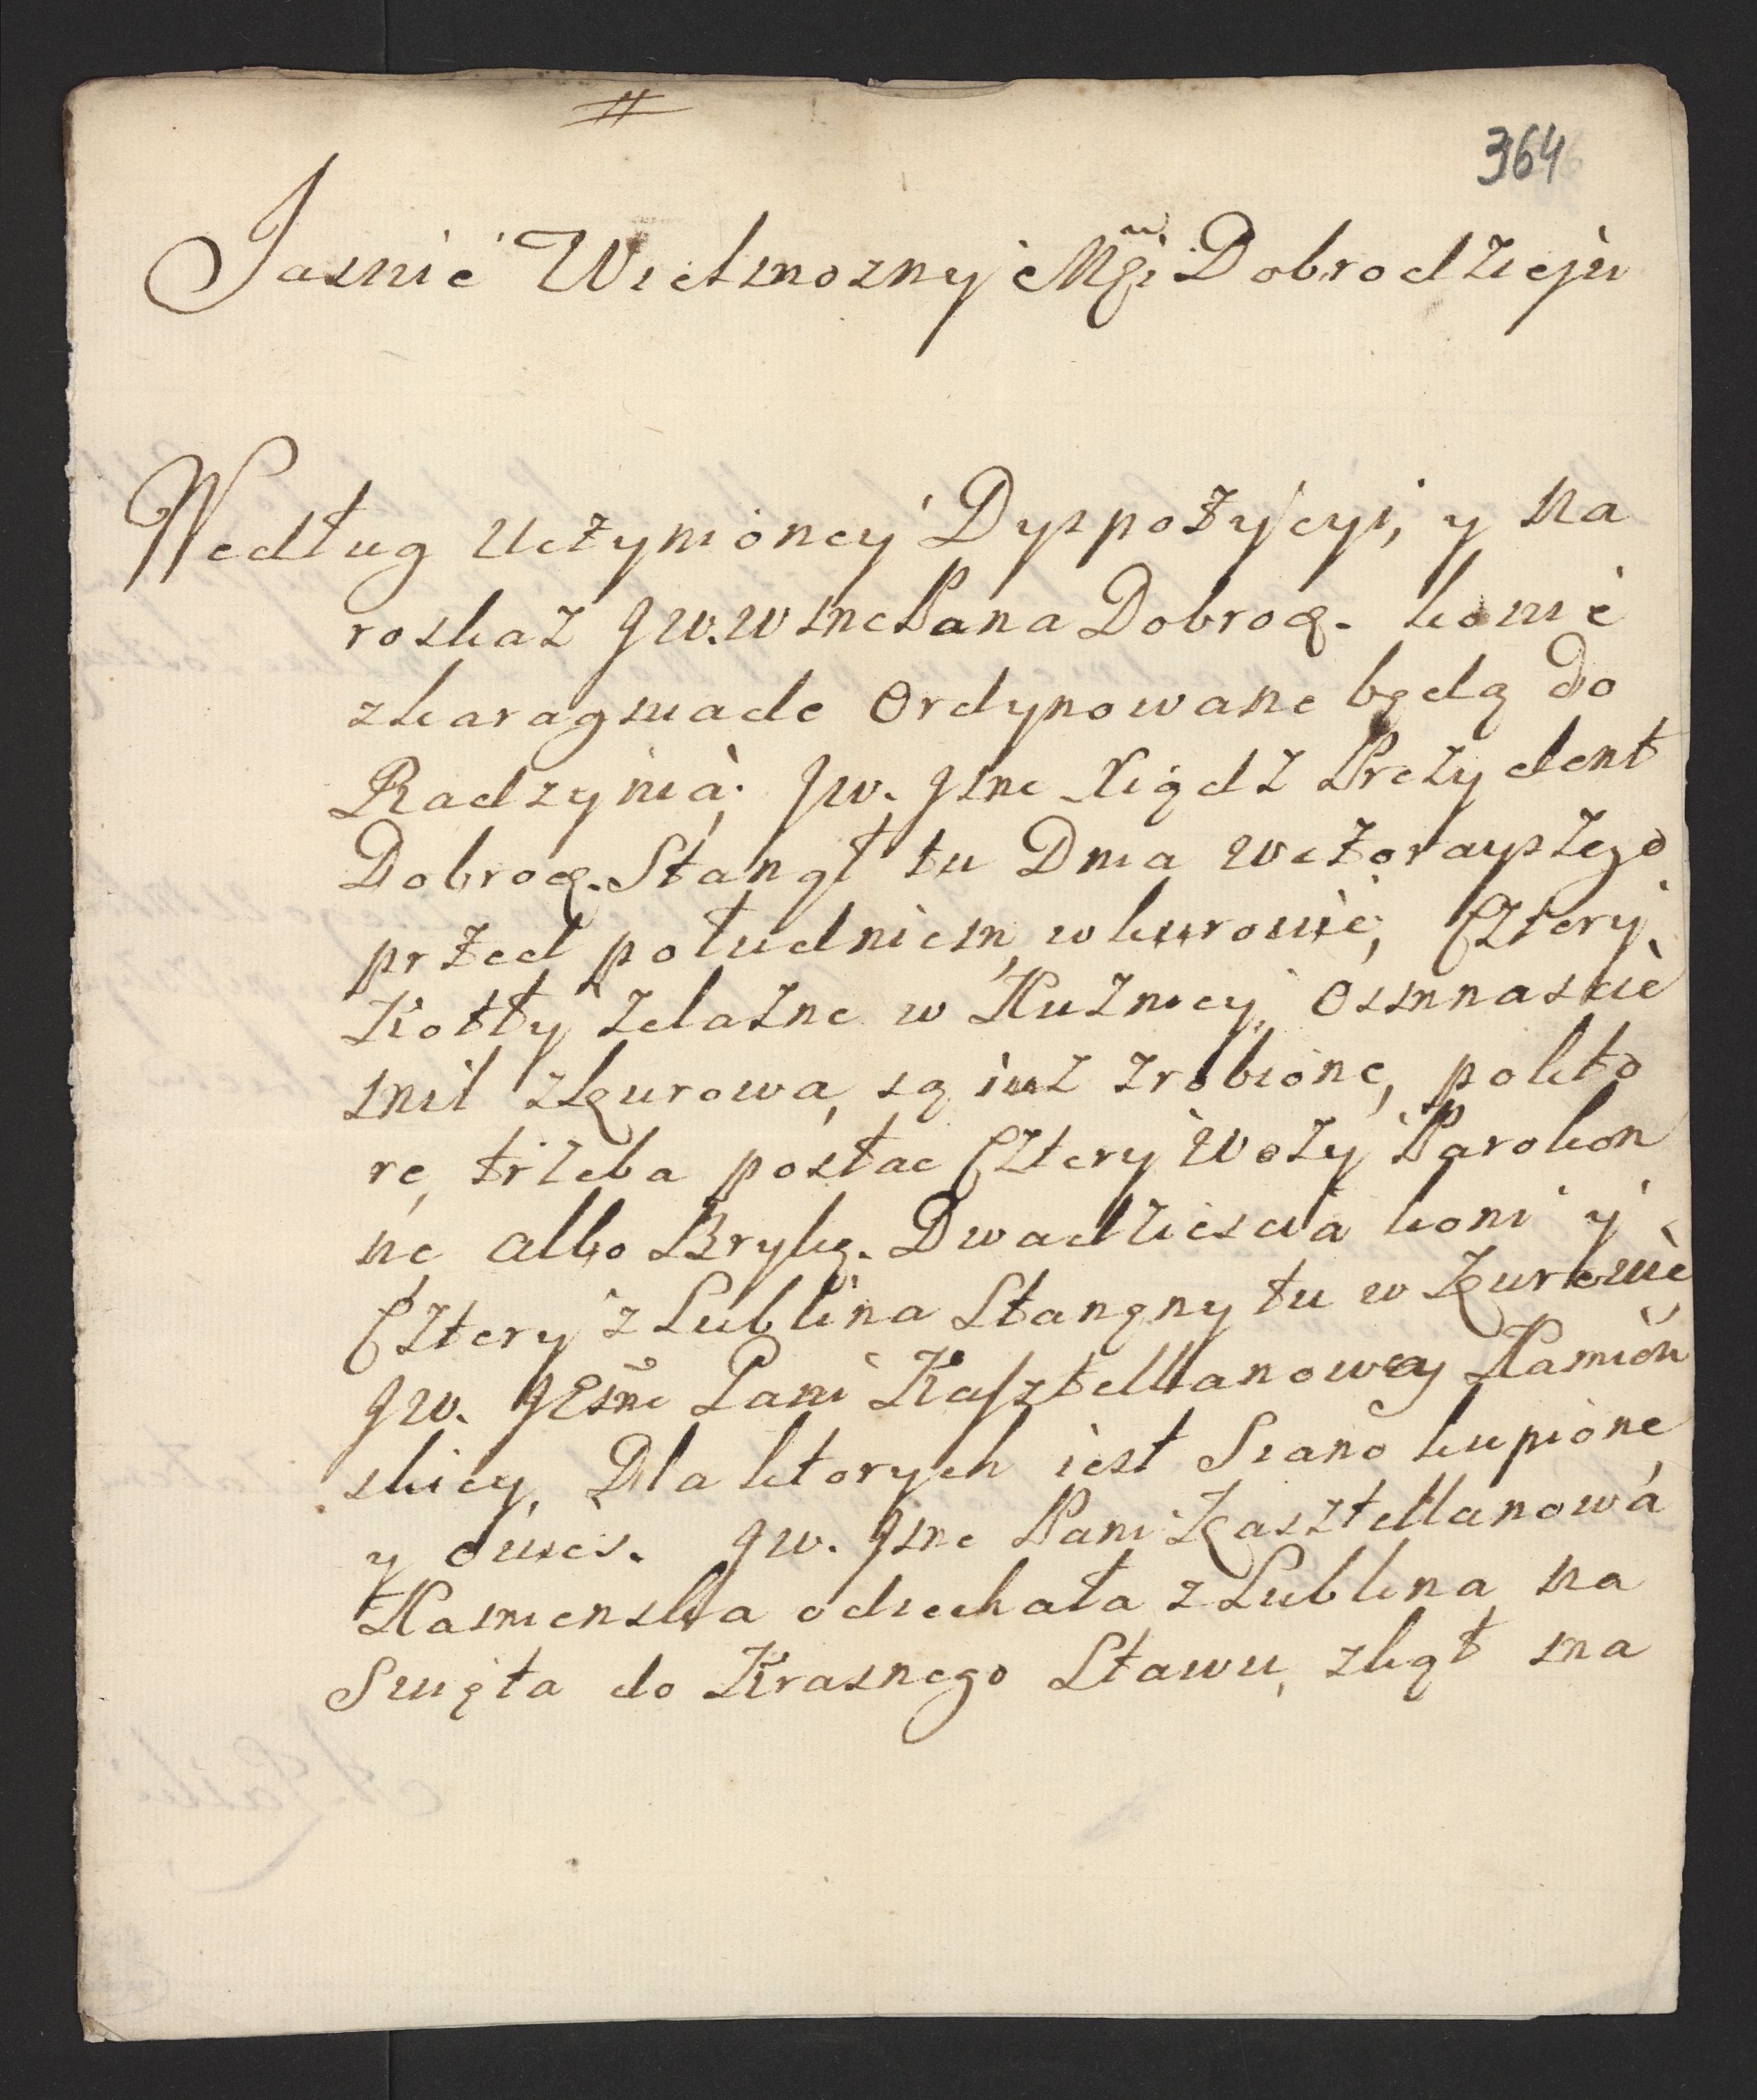 364
Jasnie Wielmozny Mći Dobrodzieju
Według Uczynioney Dyspozycyi, y na
roskaz JW. W Jmc Pana Dobrod. konie
z karagmade Ordynowane będą do
Radzynia. JW. Jmc Xiądz Prezydent
Dobrod. Stanął tu Dnia Wczorayszego
przed południem, w kurowie, Cztery
Kotły żelazne w Kuznicy, Osmnascie
mil z Kurowa, są iuż zrobione, po kto
re, trzeba posłac Cztery Wozy Parokon
ne albo Brykę. Dwadziescia koni y
Cztery z Lublina Stanęny tu w Kurowie
JW. JEsmc Pani Kasztellanowey Kamien
skiey, Dla ktorych iest Siano kupione,
y owies. JW. Jmc Pani Kasztellanowa
Kamienska odiechała z Lublina na
Swięta do Krasnego Stawu, zkąt ma